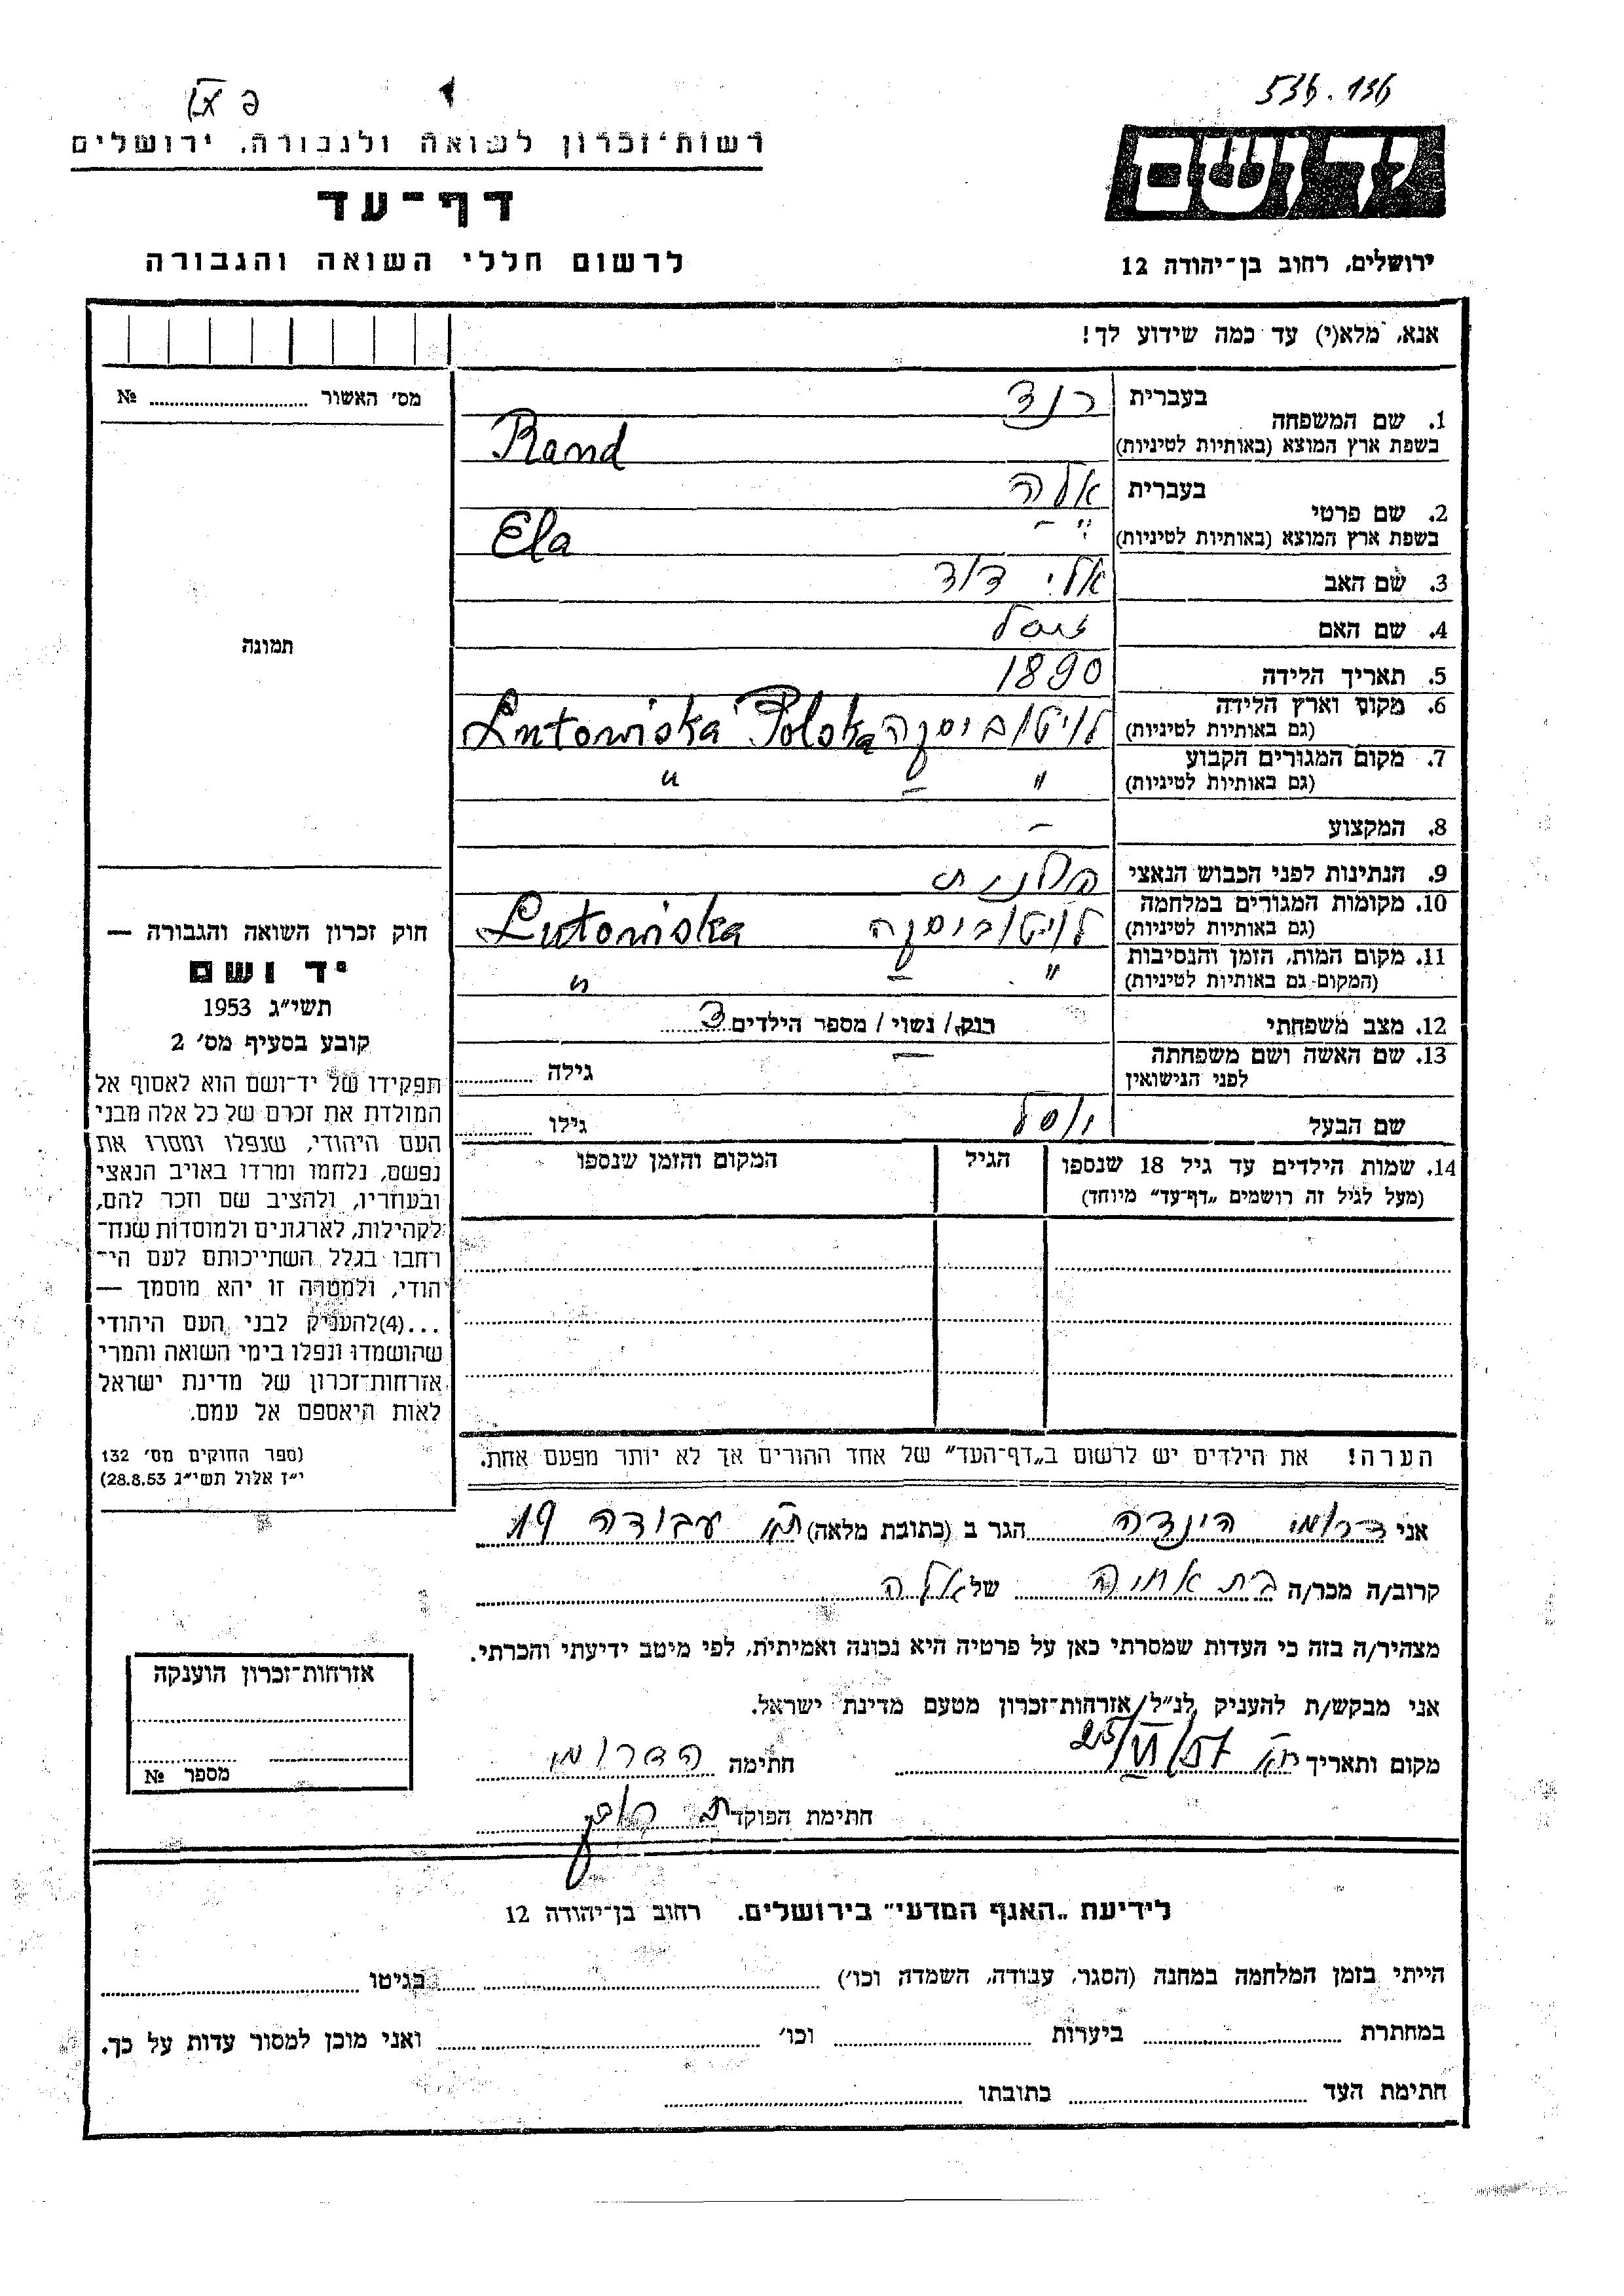 536.136
רשות־זכרון לשואה ולגבורה, ירושלים
דף־עד
לרשום חללי השואה והגבורה
יד ושם
ירושלים, רחוב בן־יהודה 12
אנא, מלא(י) עד כמה שידוע לך!
מס׳ האשור № 
1. שם המשפחה
בעברית רנד
בשפת ארץ המוצא (באותיות לטיניות) Rand
2. שם פרטי
בעברית אלה
בשפת ארץ המוצא (באותיות לטיניות) Ela
3. שם האב אלי דוד
4. שם האם
5. תאריך הלידה 1890
6. מקום וארץ הלידה לויטוביסקה Lutowiska Polska
(גם באותיות לטיניות)
7. מקום המגורים הקבוע " – "
(גם באותיות לטיניות)
8. המקצוע –
9. הנתינות לפני הכבוש הנאצי פולנית
10. מקומות המגורים במלחמה לויטוביסקה Lutowiska
(גם באותיות לטיניות)
11. מקום המות, הזמן והנסיבות " – "
(המקום גם באותיות לטיניות)
12. מצב משפחתי רוק / נשוי / מספר הילדים 3
13. שם האשה ושם משפחתה – גילה
לפני הנישואין
שם הבעל יוסל גילו
14. שמות הילדים עד גיל 18 שנספו הגיל המקום והזמן שנספו
(מעל לגיל זה רושמים „דף־עד" מיוחד)
הערה! את הילדים יש לרשום ב„דף־העד" של אחד ההורים אך לא יותר מפעם אחת.
תמונה
חוק זכרון השואה והגבורה —
יד ושם
תשי״ג 1953
קובע בסעיף מס׳ 2
תפקידו של יד־ושם הוא לאסוף אל
המולדת את זכרם של כל אלה מבני
העם היהודי, שנפלו ומסרו את
נפשם, נלחמו ומרדו באויב הנאצי
ובעוזריו, ולהציב שם וזכר להם,
לקהילות, לארגונים ולמוסדות שנח־
רחבו בגלל השתייכותם לעם הי־
הודי, ולמטרה זו יהא מוסמך —
...(4)להעניק לבני העם היהודי
שהושמדו ונפלו בימי השואה והמרי
אזרחות־זכרון של מדינת ישראל
לאות היאספם אל עמם.
(ספר החוקים מס׳ 132
י״ז אלול תשי״ג 28.8.53)
אני דרומי הינדה הגר ב (כתובת מלאה) ת״א עבודה 19
קרוב/ה מכר/ה בת אחיה של אלה
מצהיר/ה בזה כי העדות שמסרתי כאן על פרטיה היא נכונה ואמיתית, לפי מיטב ידיעתי והכרתי.
אני מבקש/ת להעניק לנ״ל/אזרחות־זכרון מטעם מדינת ישראל.
מקום ותאריך ת״א 25/VI/57 חתימה ה דרומי
חתימת הפוקד
אזרחות־זכרון הוענקה
מספר №
לידיעת „האגף המדעי" בירושלים. רחוב בן־יהודה 12
הייתי בזמן המלחמה במחנה (הסגר, עבודה, השמדה וכו׳) בגיטו
במחתרת ביערות וכו׳ ואני מוכן למסור עדות על כך.
חתימת העד כתובתו